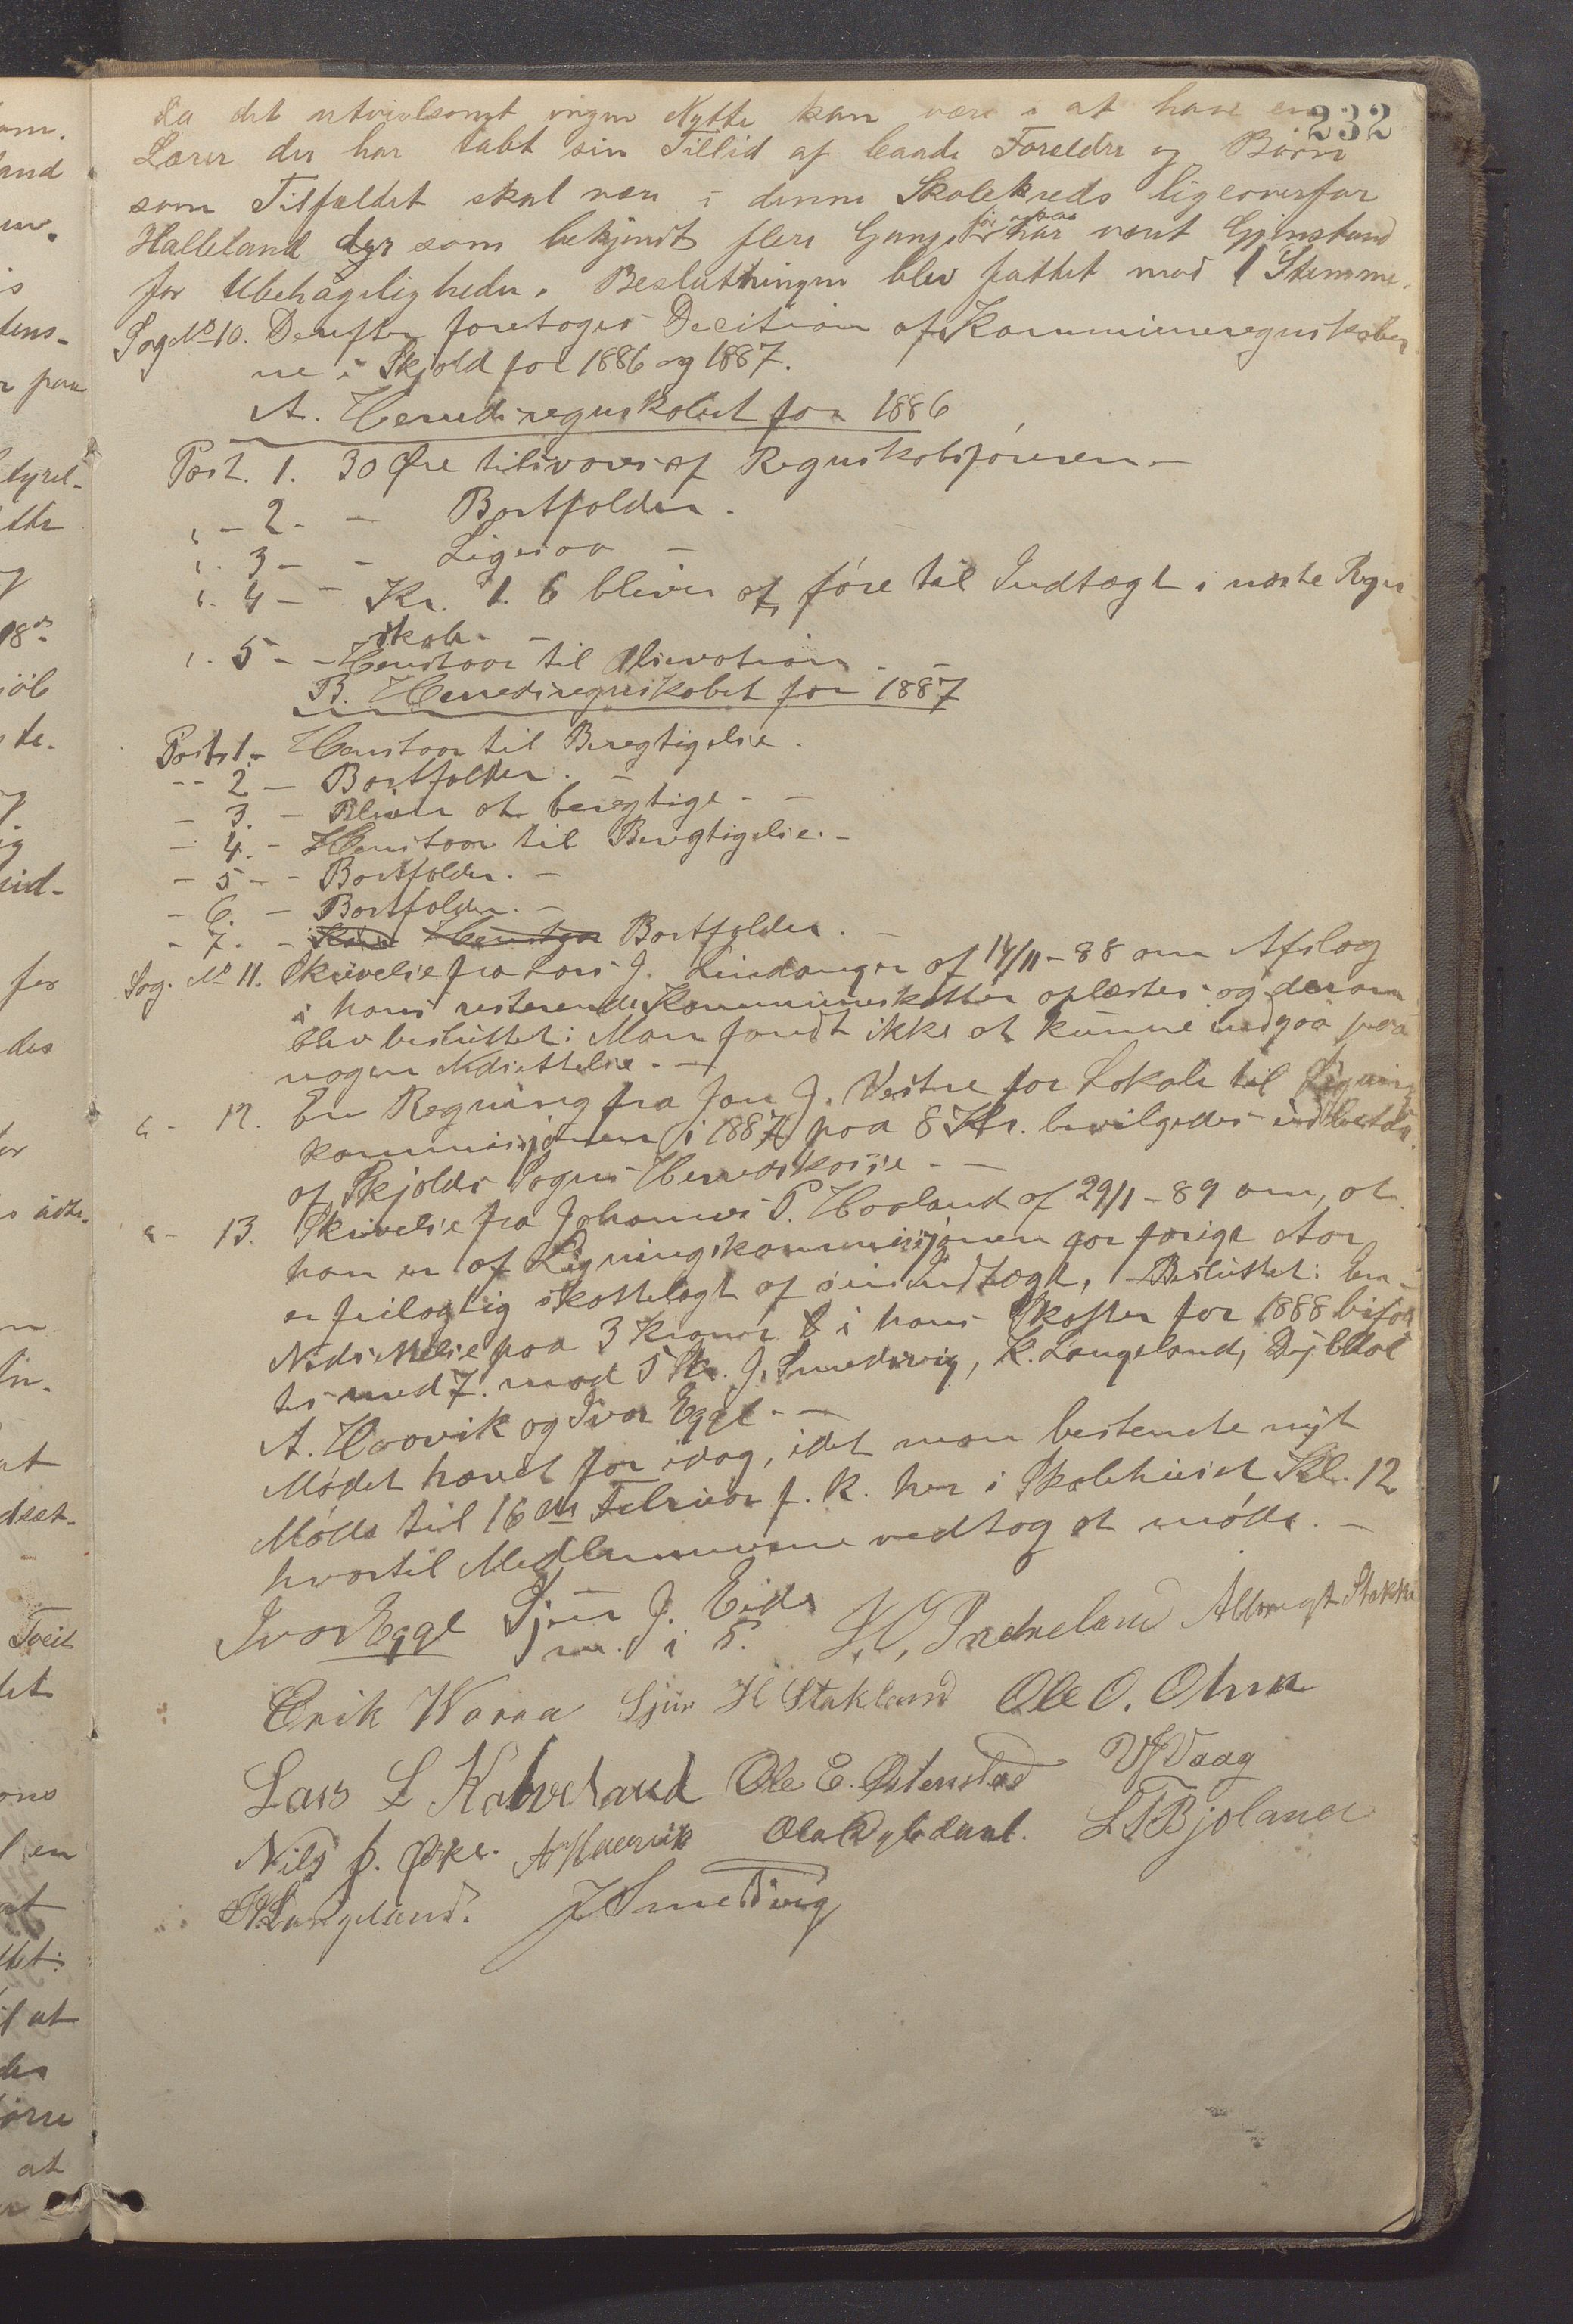 232
da det utvivlsomt ingen Nytte kan være i at have en
Lærer der har tabt sin Tillid af baade Foreldre og Börn
som Tilfældet skal være i denne Skolekreds ligeoverfor
Halleland der som bekjendt flere Gange för har været Gjenstand
for Ubehageligheder. Beslutningen blev fattet mod 1 Stemme.
Sag No 10. Derefter foretoges Decition af Kommuneregnskaber
ne i Skjold for 1886 og 1887.
A. Herredsregnskabet for 1886
Post. 1. 30 Øre tilsvares af Regnskabsföreren. —
" - 2 - — Bortfalder.
" - 3 - - Ligesaa —
" - 4 - - Kr. 1.6 bliver at före til Indtægt i næste Regn
skab. -
" - 5 - - Henstaar til Observation - -
B. Herredsregnskabet for 1887
Post 1. - Henstaar til Beregtigelse.
-- 2 - Bortfalder. -
- 3. - Bliver at beregtige. - -
- 4. - Henstaar til Beregtigelse. -
- 5 - - Bortfalder. -
- 6. - Bortfalder. -
- 7. - Henstaar Bortfalder. -
Sag. No 11. Skrivelse fra Lars J. Lindanger af 14/11 - 88 om Afslag
i hans resterende Kommuneskatter oplæstes og derom
blev besluttet: Man fandt ikke at kunne indgaa paa
nogen Nedsættelse. -
" - 12. En Regning fra Jon J. Vestre for Lokale til Ligning
kommissjonen i 1887 paa 8 Kr. bevilgedes udbetalt
af Skjolds Sogns Herredskasse. - -
" - 13. Skrivelse fra Johannes P. Haaland af 29/1 - 89 om, at
han er af Ligningskommissjonen for forige Aar
er feilagtig skattelagt af sin Indtægt. Besluttet: en
Nedsættelse paa 3 Kroner i hans Skatter for 1888 bifal
tes med 7. mod 5 St. J. Smedsvig, K. Langeland, Dybdal
A. Haavik og Ivar Egge. -
Mødet hævet for idag, idet man bestemte nyt
Møde til 16de Februar f. k. her i Skolehuset Kl. 12
hvortil Medlemmerne vedtog at møde. -
Ivar Egge Sjur J. Eide Albregt Stakke
m. i P.
Erik Warra Sjur H Stakland Ole O. Olsen
Lars L Kalveland Ole E. Østensted VVaag
Nils J. Øike. AHaavik Ola Dybdahl. LTBjoland
KLangeland. JSmedsvig